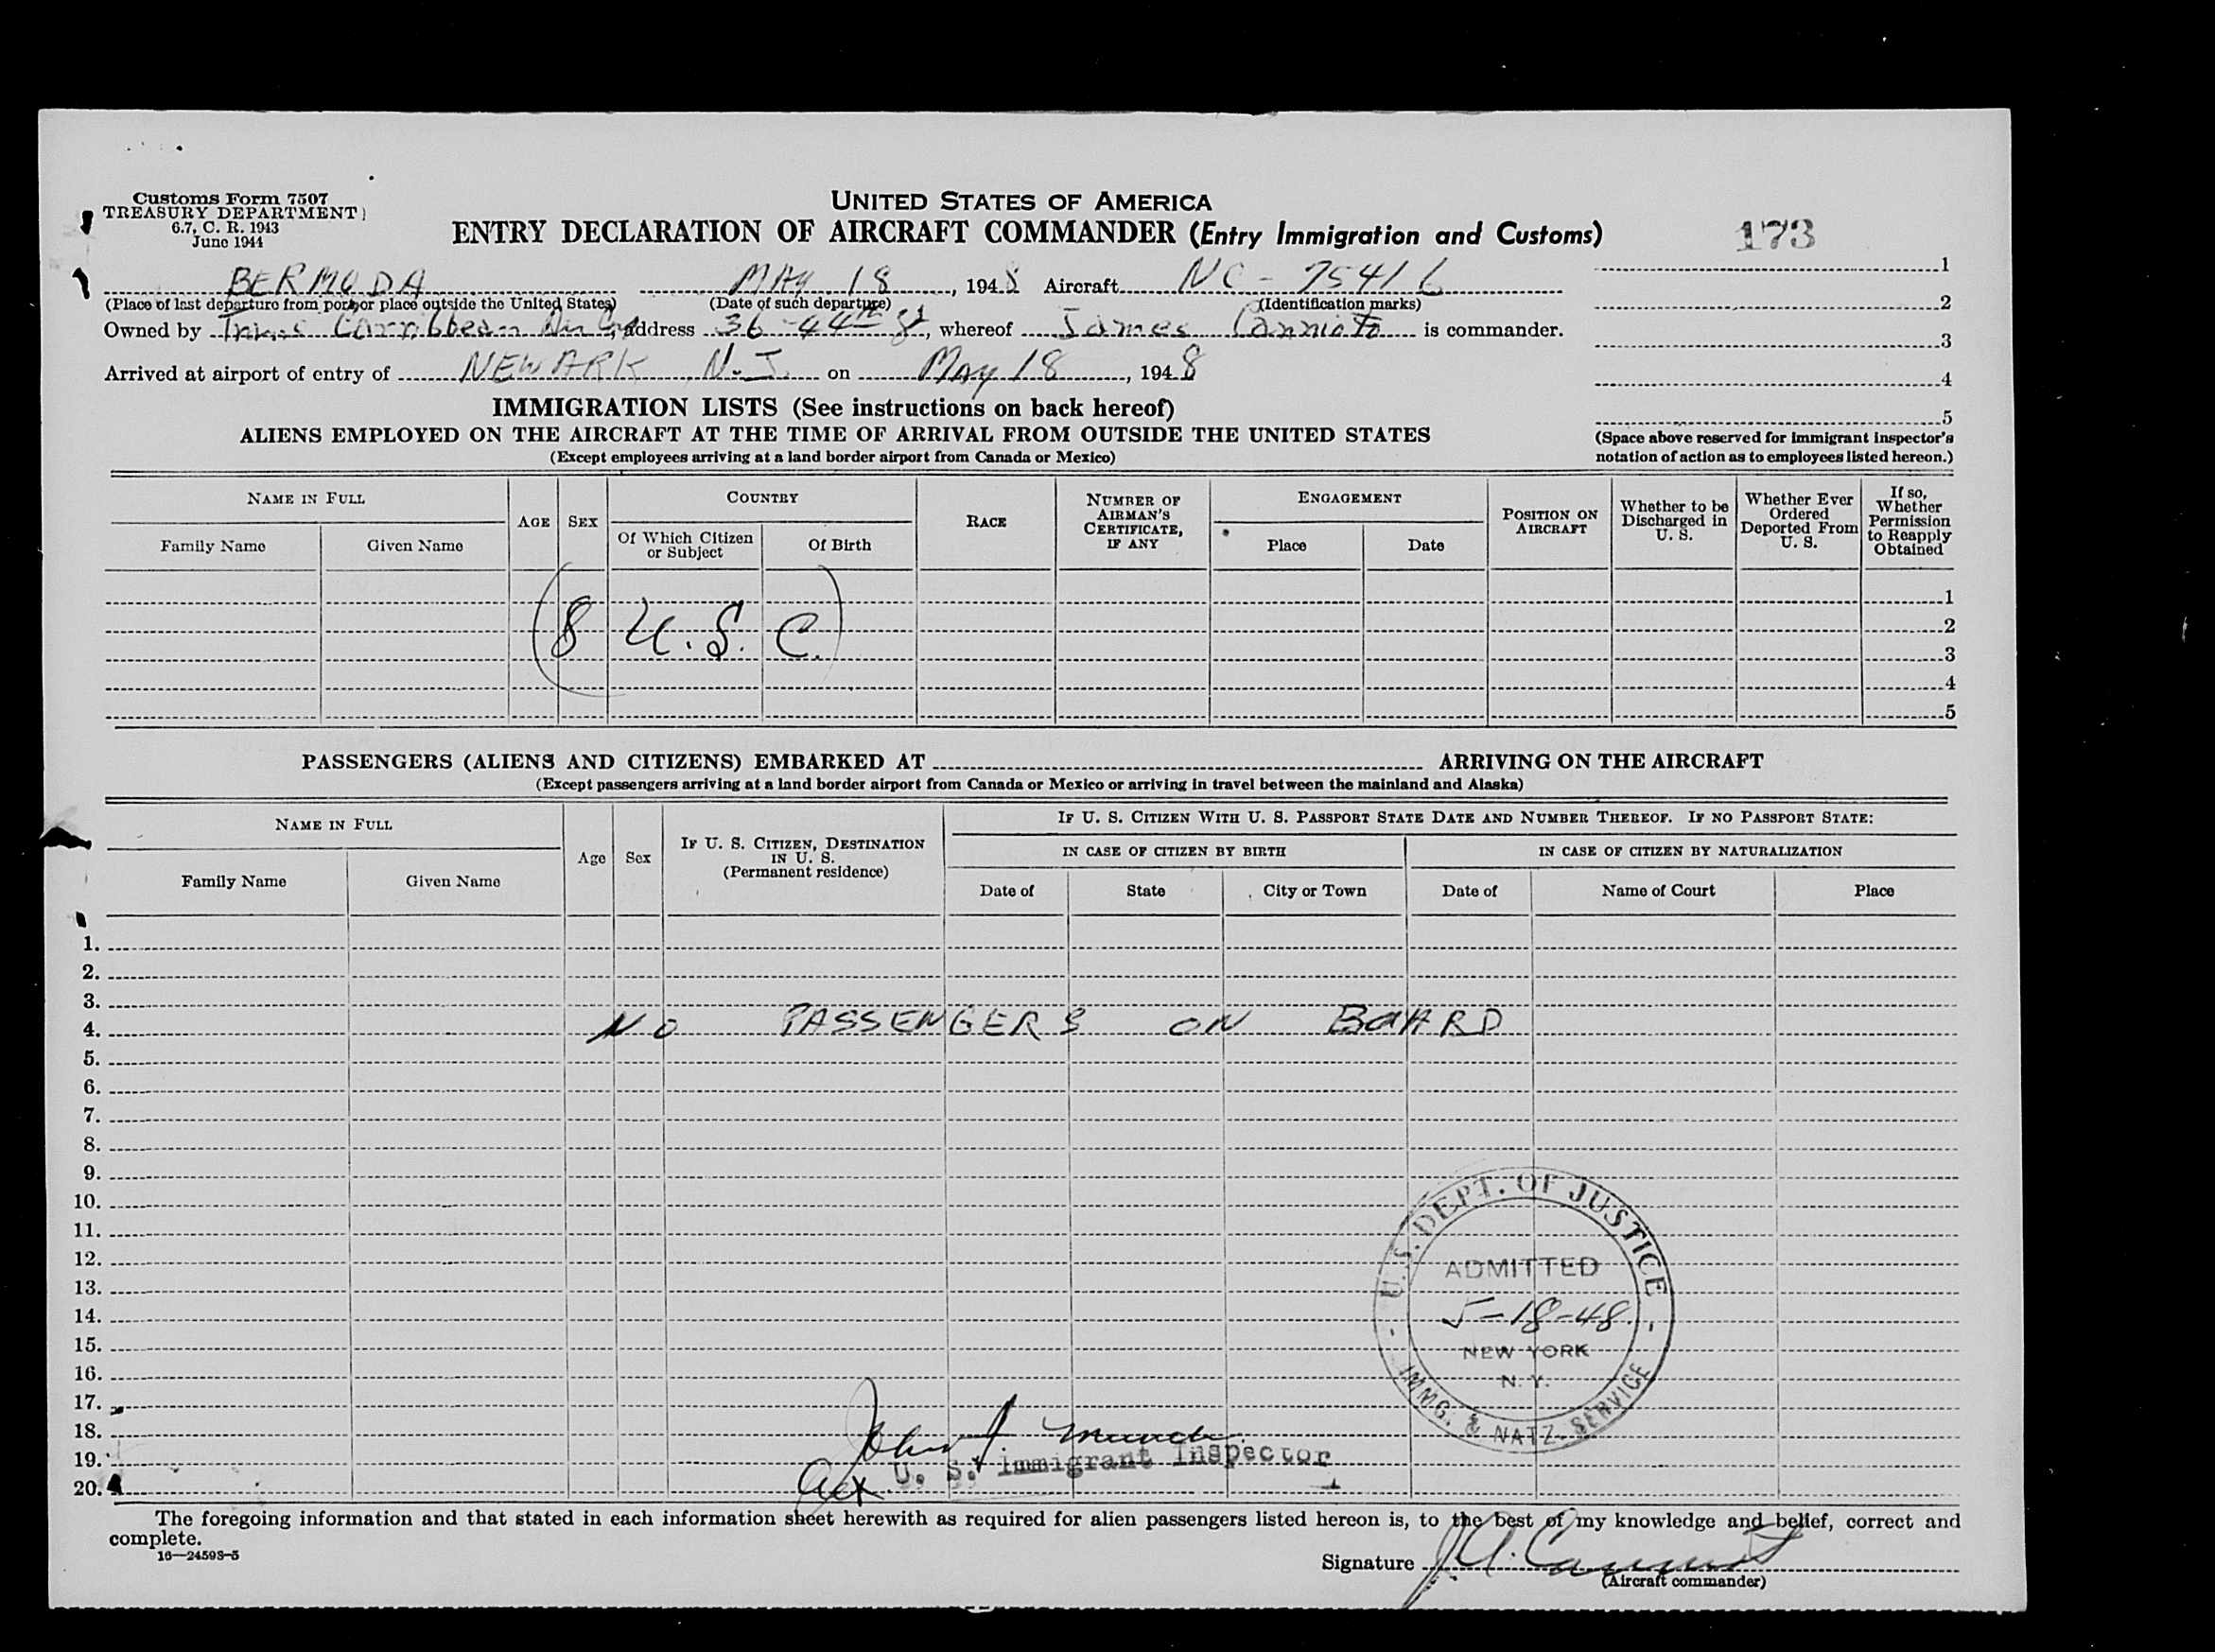 Customs Form 7507
TREASURY DEPARTMENT
6.7, C. R. 1943
June 1944
UNITED STATES OF AMERICA
ENTRY DECLARATION OF AIRCRAFT COMMANDER (Entry Immigration and Customs)
173
BERMUDA MAY 18, 1948 Aircraft NC-75416
(Place of last departure from port or place outside the United States) (Date of such departure) (Identification marks)
Owned by Trans Carribbean Air, address 36-44th St, whereof James is commander.
Arrived at airport of entry of NEWARK N.J. on May 18, 1948
1
2
3
4
5
(Space above reserved for immigrant inspector's
notation of action as to employees listed hereon.)
IMMIGRATION LISTS (See instructions on back hereof)
ALIENS EMPLOYED ON THE AIRCRAFT AT THE TIME OF ARRIVAL FROM OUTSIDE THE UNITED STATES
(Except employees arriving at a land border airport from Canada or Mexico)
NAME IN FULL
Family Name Given Name
AGE SEX
COUNTRY
Of Which Citizen or Subject Of Birth
RACE
NUMBER OF AIRMAN'S CERTIFICATE, IF ANY
ENGAGEMENT
Place Date
POSITION ON AIRCRAFT
Whether to be Discharged in U. S.
Whether Ever Ordered Deported From U. S.
If so, Whether Permission to Reapply Obtained
1
2
3
4
5
(8 U.S.C.)
PASSENGERS (ALIENS AND CITIZENS) EMBARKED AT ARRIVING ON THE AIRCRAFT
(Except passengers arriving at a land border airport from Canada or Mexico or arriving in travel between the mainland and Alaska)
NAME IN FULL
Family Name Given Name
Age Sex
IF U. S. CITIZEN, DESTINATION IN U. S.
(Permanent residence)
IF U. S. CITIZEN WITH U. S. PASSPORT STATE DATE AND NUMBER THEREOF. IF NO PASSPORT STATE:
IN CASE OF CITIZEN BY BIRTH IN CASE OF CITIZEN BY NATURALIZATION
Date of State City or Town Date of Name of Court Place
1.
2.
3.
4. NO PASSENGERS ON BOARD
5.
6.
7.
8.
9.
10.
11.
12.
13.
14.
15.
16.
17.
18.
19.
20.
U.S. DEPT. OF JUSTICE
ADMITTED
5-18-48
NEW YORK
N. Y.
IMMG. & NATZ. SERVICE
John J.
U. S. Immigrant Inspector
The foregoing information and that stated in each information sheet herewith as required for alien passengers listed hereon is, to the best of my knowledge and belief, correct and
complete.
16—24593-5
Signature J. A.
(Aircraft commander)